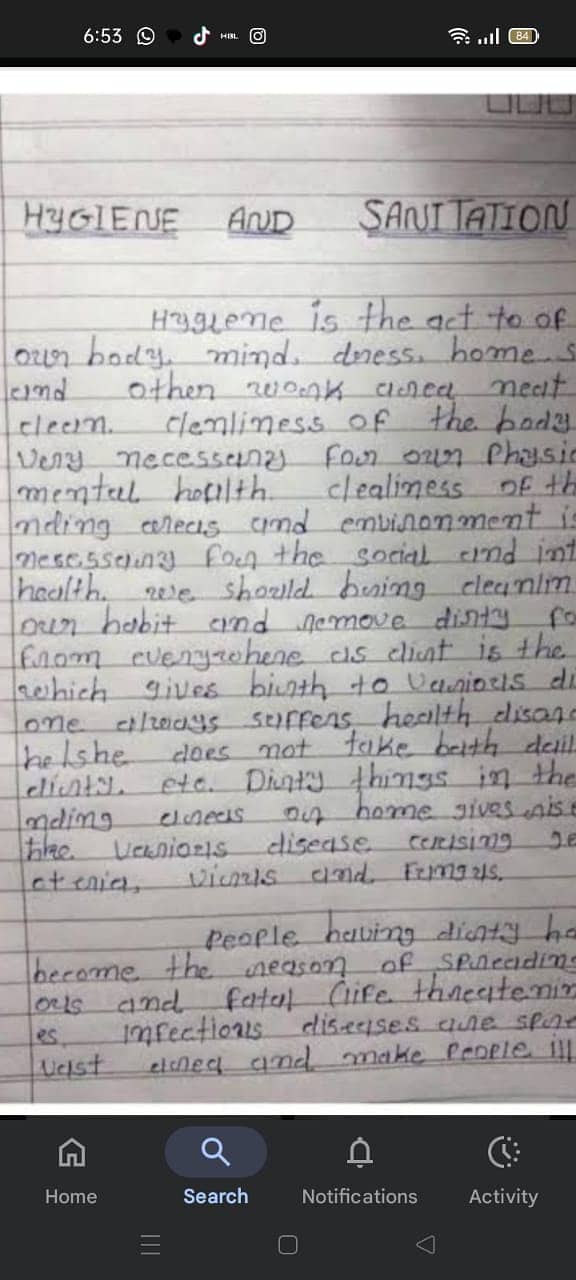 6:53
HBL
84
HYGIENE AND SANITATION
Hygiene is the act to of
our body. mind. dress. home. s
and other work area neat
clean. clenliness of the body
Very necessary for our Physic
mental health. clealiness of th
nding areas and environment is
nesessary for the social and int
health. we should bring cleanlin
our habit and remove dirty fo
from everywhere as dirt is the
which gives birth to Various di
one always suffers health disord
he/she does not take bath dail
dirty. etc. Dirty things in the
nding areas or home gives rise
the Various disease causing ge
cteria, Virus and Fungus.
People having dirty ha
become the reason of spreading
ous and fatal (life threatenin
es infectious diseases are spre
Vast area and make people ill
Home
Search
Notifications
Activity